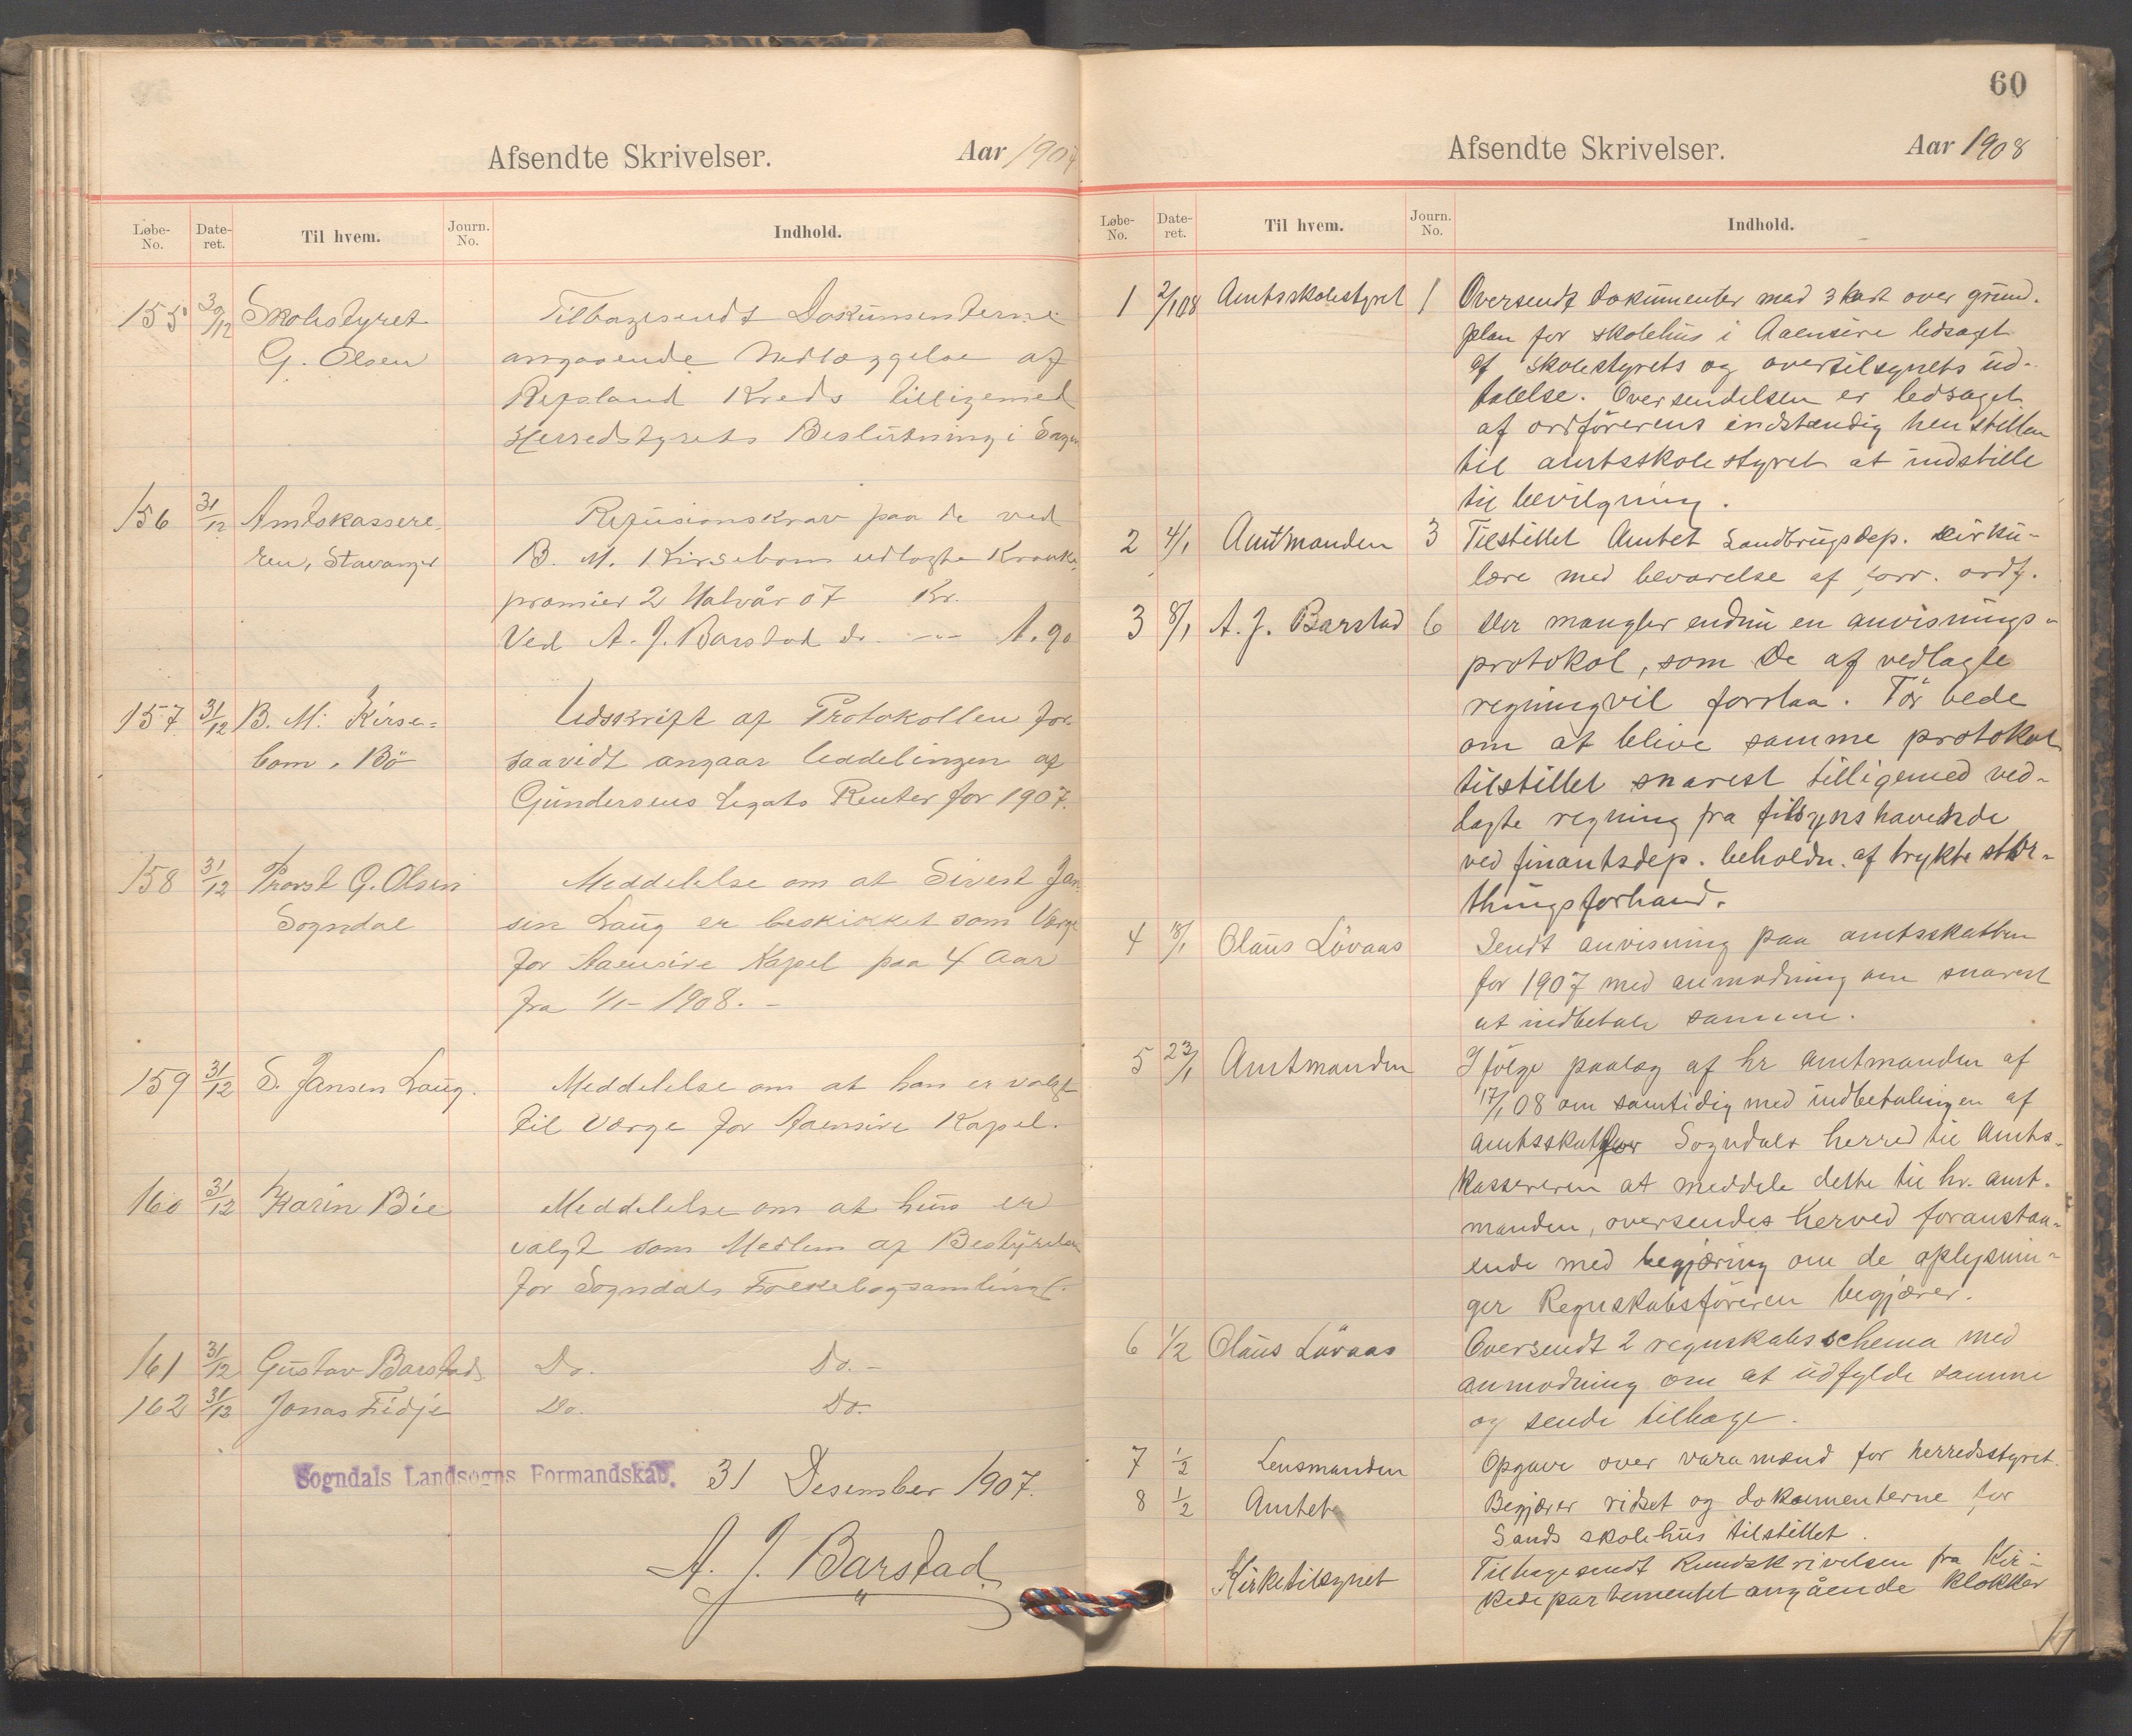 Afsendte Skrivelser. Aar 1907
Løbe-No. Date-ret. Til hvem. Journ. No. Indhold.
155 30/12 Skolestyret Tilbagesendt Dokumenterne
G. Olsen angaaende Nedlæggelse af
Refsland Kreds tilligemed
Herredstyrets Beslutning i Sagen
156 31/12 Amtskassere- Refusionskrav paa de ved
ren, Stavanger B. M. Kirsebom udlagte Kranke
præmier 2 Halvår 07 Kr.
Ved A. J. Barstad do. -- 1.90
157 31/12 B. M. Kirse- Udskrift af Protokollen for-
bom, Bö saavidt angaar Uddelingen af
Gundersens Legats Renter for 1907.
158 31/12 Provst G. Olsen Meddelelse om at Sivert Jan-
Sogndal sen Laug er beskikket som Værge
for Aaensire Kapel paa 4 Aar
fra 1/1- 1908. -
159 31/12 S. Jansen Laug. Meddelelse om at han er valgt
til Værge for Aaensire Kapel.
160 31/12 Karin Bie Meddelelse om at hun er
valgt som Medlem af Bestyrelsen
for Sogndals Folkebogsamling.
161 31/12 Gustav Barstad Do. Do. -
162 31/12 Jonas Fidje Do. Do.
Sogndals Landsogns Formandskab. 31 Desember 1907.
A. J. Barstad
60
Afsendte Skrivelser. Aar 1908
Løbe-No. Date-ret. Til hvem. Journ. No. Indhold.
1 2/1 08 Amtsskolestyret 1 Oversendt dokumenter med 3 kart over grund-
plan for skolehus i Aaensire ledsaget
af skolestyrets og overtilsynets ud-
talelse. Oversendelsen er ledsaget
af ordförerens indstændig henstillen
til amtsskolestyret at indstille
til bevilgning.
2 4/1 Amtmanden 3 Tilstillet Amtet Landbrugsdep. cirku-
lære med bevarelse af forr. ordf.
3 8/1 A. J. Barstad 6 Der mangler endnu en anvisnings-
protokol, som De af vedlagte
regning vil forstaa. Tör bede
om at blive samme protokol
tilstillet snarest tilligemed ved-
lagte regning fra tilsynshavende
ved finantsdep. beholdn. af trykte stor-
thingsforhand.
4 18/1 Olaus Lövaas Sendt anvisning paa amtsskatten
for 1907 med anmodning om snarest
at indbetale samme.
5 23/1 Amtmanden Ifölge paalæg af hr amtmanden af
17/1 08 om samtidig med indbetalingen af
amtsskat for Sogndals herred til Amts-
kassereren at meddele dette til hr. amt-
manden, oversendes herved foranstaa-
ende med begjæring om de oplysnin-
ger Regnskabsföreren begjærer.
6 1/2 Olaus Lövaas Oversendt 2 regnskabsschema med
anmodning om at udfylde samme
og sende tilbage.
7 1/2 Lensmanden Opgave over varamænd for herredsstyret.
8 1/2 Amtet Begjærer ridset og dokumenterne for
Sands skolehus tilstillet.
Kirketilsynet Tilbagesendt Rundskrivelsen fra Kir-
kedepartementet angående klokker